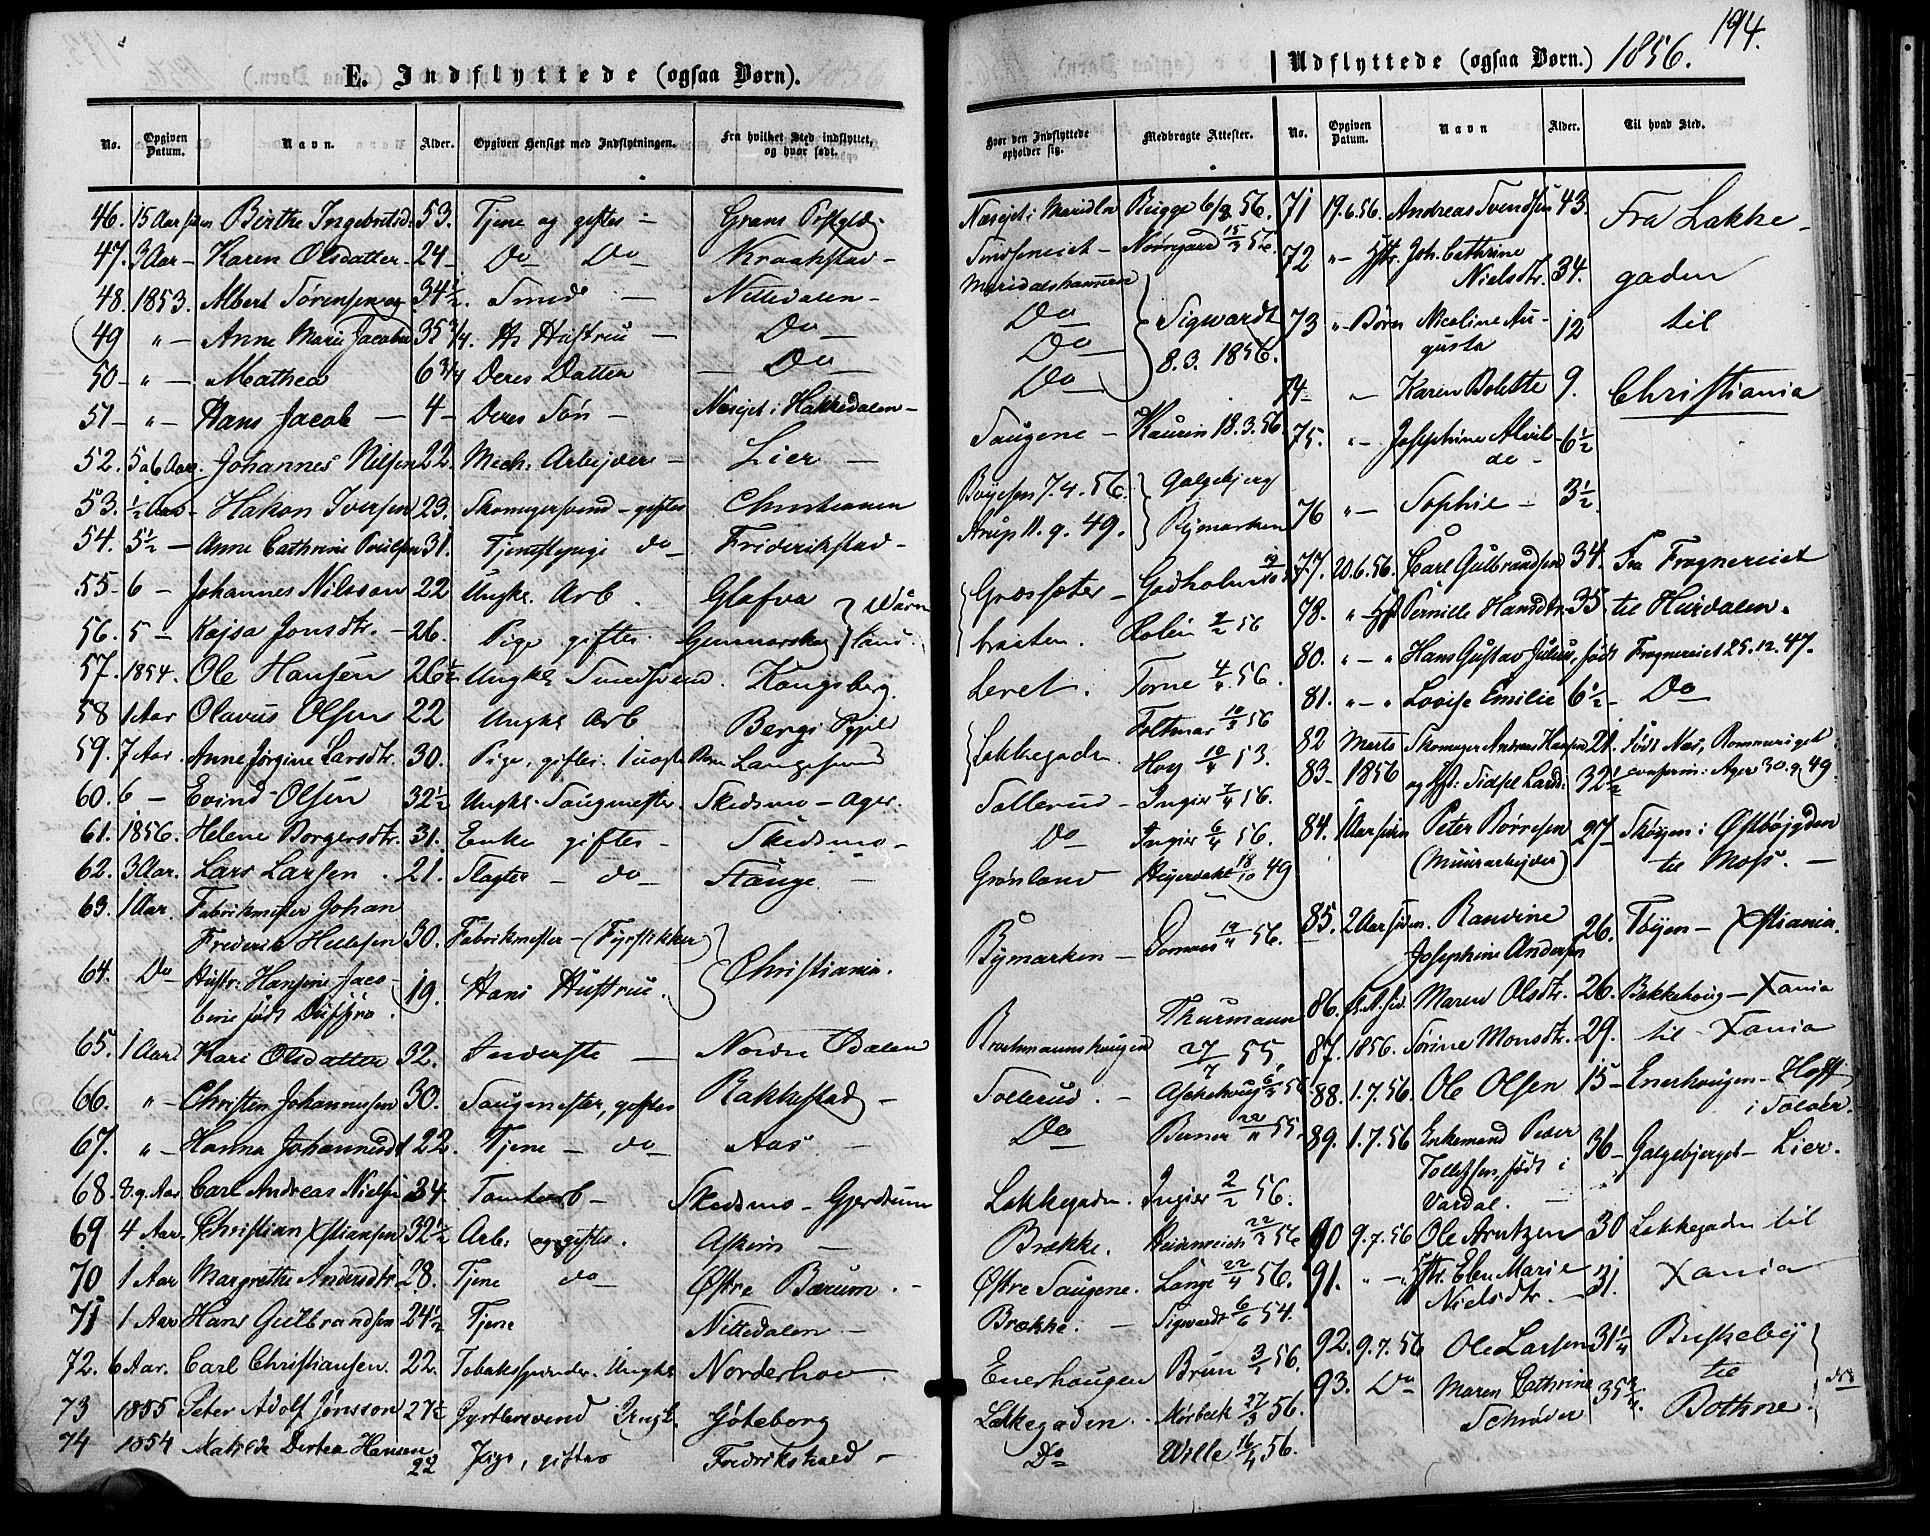 194.
E. Indflyttede (ogsaa Børn).
Udflyttede (ogsaa Børn.) 1856.
No. Opgiven Datum. Navn. Alder. Opgiven Hensigt med Indflytningen. Fra hvilket Sted indflyttet, og hvor født.
46. 15 Aar siden Birthe Ingebretsd. 53. Tjene og giftes - Grans Præstgjeld
47. 3 Aar - Karen Olsdatter - 24 - Do Do Kraakstad -
48. 1853. Albert Sørensen og 34 1/2. Smed - Nittedalen -
49 " - Anne Marie Jacobsd 35 3/4. Hs Hustru - Do -
50 - " - Mathea 6 3/4 Deres Datter - Do -
51 - " - Hans Jacob - 4 - Deres Søn - Næsejet i Hakkedalen -
52. 5 a 6 Aar. Johannes Nilsen 22. Mech. Arbejder - Lier -
53. 1/2 Aar - Hakon Iversen 23. Skomagersvend - giftes Christiania
54. 5 1/2 - Anne Cathrine Poulsen 31. Tjenestepige do Friderikstad -
55 - 6 - Johannes Nilsson 22 Ungk. Arb. Glafva
56. 5 - Kajsa Jonsdtr. - 26. Pige giftes. Gunnarskog } Värmland
57. 1854. Ole Hansen 26 1/2 Ungkl Smedsvend. Kongsberg.
58 1 Aar Olavus Olsen 22 Ungkl Arb Bergs Pgjeld
59. 7 Aar. Anne Jørgine Larsdtr. 30. Pige, giftes. Langesund
60. 6 - Evind Olsen 32 1/2 Ungkl. Saugmester. Skedsmo - Ager.
61. 1856. Helene Borgersdtr. 31. Enke giftes - Skedsmo -
62. 3 Aar. Lars Larsen. 21. Slagter - do - Hauge. -
63. 1 Aar. Fabrikmester Johan
Frederik Hellesen 30. Fabrikmester - (Fyrstikker)
64. Do Hustr: Hansine Jaco-
bine født 19. Hans Hustrue. } Christiania.
65. 1 Aar Kari Olsdatter 32. Inderste - Nordre Odalen
66. " - Christen Johannesen 30. Saugmester, giftes Rakkestad -
67. " - Hanna Johannesdt 22. Tjene - do Aas -
68. 8.9. Aar Carl Andreas Nielsen 34. Tomtearb - Skedsmo - Gjerdrum
69 4 Aar. Christian Xstiansen 32 1/2 Arb. og giftes. Askim -
70 1 Aar Margrethe Andersdtr. 28. Tjene do - Østre Bærum. -
71 1 Aar Hans Gulbrandsen 24 1/2 Tjene Nittedalen -
72. 6 Aar. Carl Christiansen. 22. Tobaksspinder. Ungkl Norderhov.
73 1855 Peter Adolf Jonsson 27 1/2 Gjørtlersvend Ungk. Göteborg
74 1854 Matilde Dortea Hansen 22 Pige, giftes Fredrikshald -
Hvor den Indflyttede opholder sig. Medbragte Attester.
Næsejet i Maridalen Rugge 6/8 56.
Smedsneiet - Nørregaard 15/3 56.
Maridalshammeren
Do
Do } Sigwardt
Do 8.3. 1856.
Saugene - Kaurin 18.3.56.
Boyesen 7.4.56. } Galgebjerg
Arup 11.9.49. Bymarken
Græssæter - Godholm
braaten. Rolin 2/2 56
Leret. Torne 4/4. 56.
Lakkegaden Foltmar 10/3 56
Hoy 10/4 53.
Sollerud - Ingier 7/4 56.
Do Ingier 6/4 56.
Grønland Heyerdahl 18/10 49
Bymarken - 14/4 56.
Brochmannshaugen Thurmann 27/7 55,
Sollerud. - Aschehoug 56
Do Berner 22/11 55.
Lakkegaden. Ingier 2/2 56.
Brække. Heidenreich 22/3 56
Østre Saugene. Lange 22/4 56.
Brække. - Sigwardt 6/6 54.
Enerhaugen Brun 3/2 56.
Lakkegaden. Mørbeck 27/3 56.
Do Wille 16/4 56.
No. Opgiven Datum. Navn Alder. Til hvad Sted.
71 19.6.56. Andreas Svendsen 43. Fra Lakke-
72 " - Hstr. Joh. Cathrine
Nielsdtr. 34. gaden
73 " - Børn Nicoline Au-
gusta 12 til
74 - " - Karen Bolette 9. Christiania
75. " - Josephine Alvil-
de - 6 1/2
76 " - Sophie - 3 1/2.
77. 20.6.56. Carl Gulbrandsen 34. Fra Frognereiet
78. " - Hst Pernille Hansdtr. 35 - til Hurdalen.
80. " - " Hans Gustav Julius, født Frognereiet 25.12.47.
81. " - " Lovise Emilie 6 1/2 - Do
82 Marts Skomager Andreas Hansen 21. Født Næs, Rommeriget.
83 - 1856 og Hst: Sidsel Larsd: 32 1/2 conferm: Ager 30.9.49.
84. 1 Aar siden Peter Børresen 27 - Skøyen i Østbøjgden
(Muurarbejder) til Moss. -
85. 2 Aar siden. Randine
Josephine Andersen 26. Tøyen - Xstiania.
86. Maren Olsdtr. 26. Bekkehoug - Xania
87. 1856. Sørine Monsdtr. 29. til Xania
88. 1.7.56. Ole Olsen 15 - Enerhougen - Hoff
i Soløer.
89. 1.7.56 Enkemand Peder
Tollefsen, født i
Vardal. - 36 - Galgebjerget - Lier.
90 9.7.56 Ole Arntzen 30 Lakkegaden til
91. " - " Hstr. Ellen Marie
Nielsdtr. - 31. Xania
92. 9.7.56 Ole Larsen 31 1/4 Buskeby
93. Do Maren Cathrine
Schrøder 35 3/4. til
Bothne.